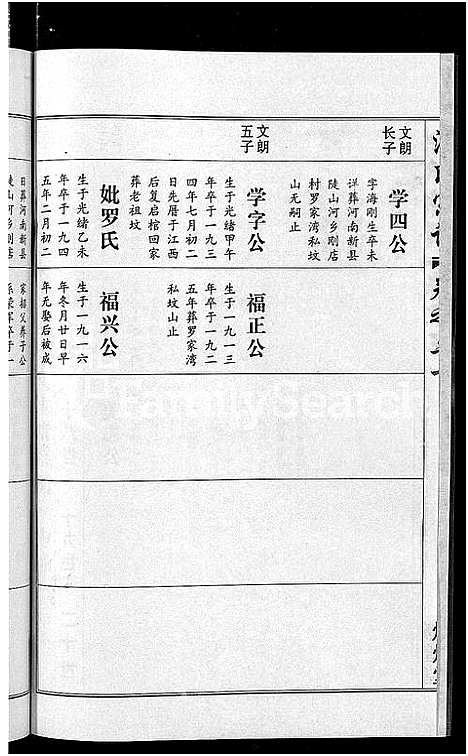 文朗
长子
学四公
字海刚生卒未
详葬河南新县
陡山河乡刚店
村罗家湾私坟
山无嗣止
文朗
五子
学字公
生于光绪甲午
年卒于一九三
四年七月初二
日先厝于江西
后复启棺回家
葬老祖坟
妣罗氏
生于光绪乙未
年卒于一九四
五年二月初二
日葬河南新县
陡山河乡刚店
福正公
生于一九一三
年卒于一九二
五年葬罗家湾
私坟山止
福兴公
生于一九一六
年冬月廿日早
年无娶后被成
家招父养子公
FamilySearch